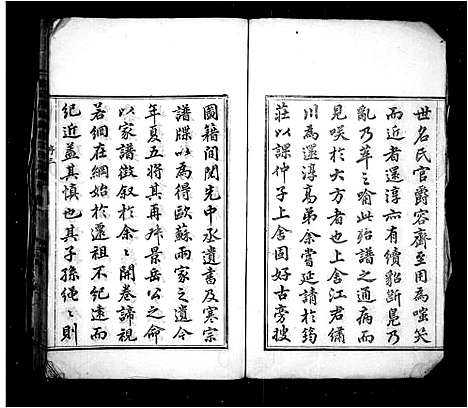 世名氏官爵容齋至用為嗤笑
而近者還淳六有續貂斷鳬乃
亂乃萃之喻此殆譜之通病而
見咲於大方者也上舍江君繡
川為還淳髙弟余嘗延請於筠
莊以課仲子上舍固好古旁捜
圖籍間閲先中丞遺書及寒宗
譜牒以為得歐蘇兩家之遺令
年夏五將其再歩景岳公之命
以家譜徴叙於余〻開卷諦視
若網在綱始於還祖不紀遠而
紀近盖其慎也其子孫繩〻則